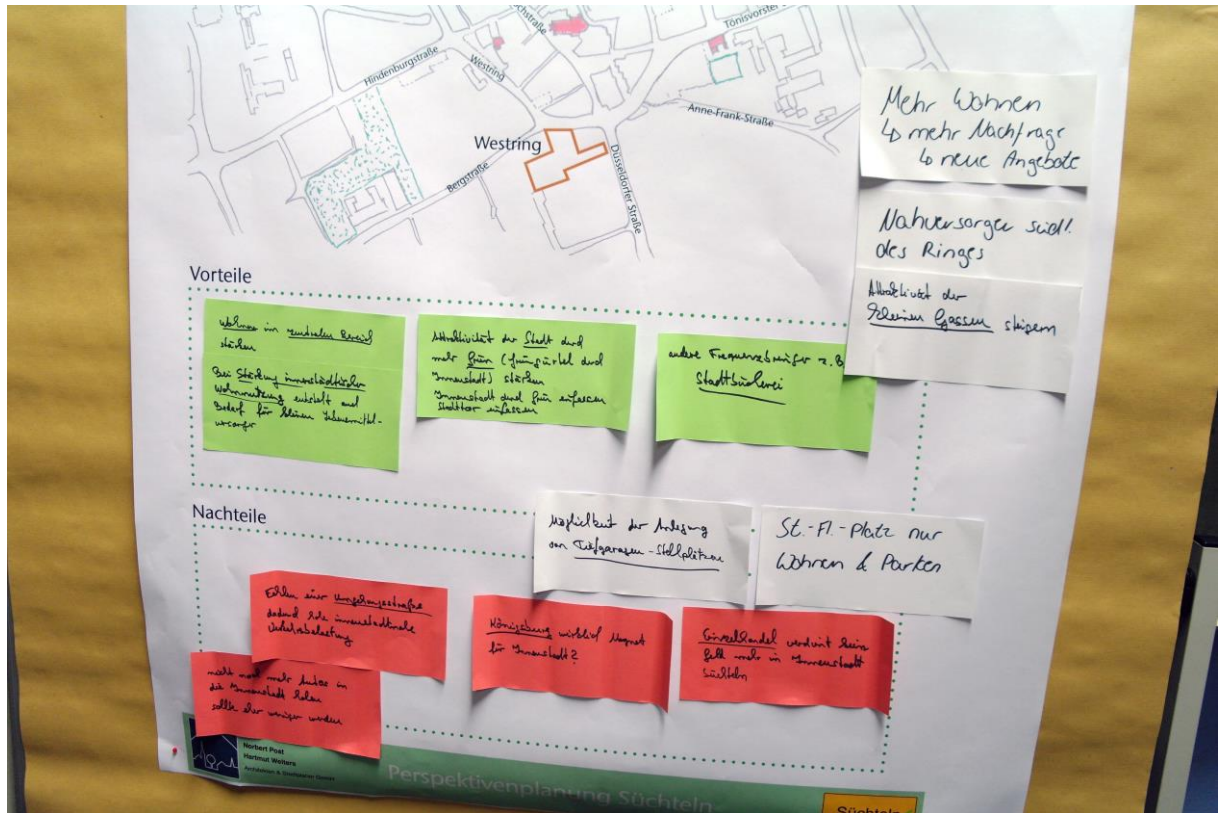 Hindenburgstraße
Westring
Tönisvorster
Anne-Frank-Straße
Westring
Bergstraße
Düsseldorfer Straße
Mehr Wohnen
↳ mehr Nachfrage
↳ neue Angebote
Nahversorger südl.
des Ringes
Attraktivität der
kleinen Gassen steigern
Vorteile
Wohnen im zentralen Bereich
stärken
Bei Stärkung innerstädtischer
Wohnnutzung entsteht auch
Bedarf für kleinen Lebensmittel-
versorger
Attraktivität der Stadt durch
mehr Grün (Grüngürtel durch
Innenstadt) stärken
Innenstadt durch Grün einfassen
Stadttor einfassen
andere Frequenzbringer z.B
Stadtbücherei
Nachteile
Möglichkeit der Anlegung
von Tiefgaragen-Stellplätzen
St.-Fl.-Platz nur
Wohnen & Parken
Fehlen einer Umgehungsstraße
dadurch hohe innenstadtnahe
Verkehrsbelastung
Königsburg wirklich Magnet
für Innenstadt?
Einzelhandel verdient kein
Geld mehr in Innenstadt
Süchteln
nicht noch mehr Autos in
die Innenstadt holen
sollte eher weniger werden
Norbert Post
Hartmut Welters
Architekten & Stadtplaner GmbH
Perspektivenplanung Süchteln
Süchteln